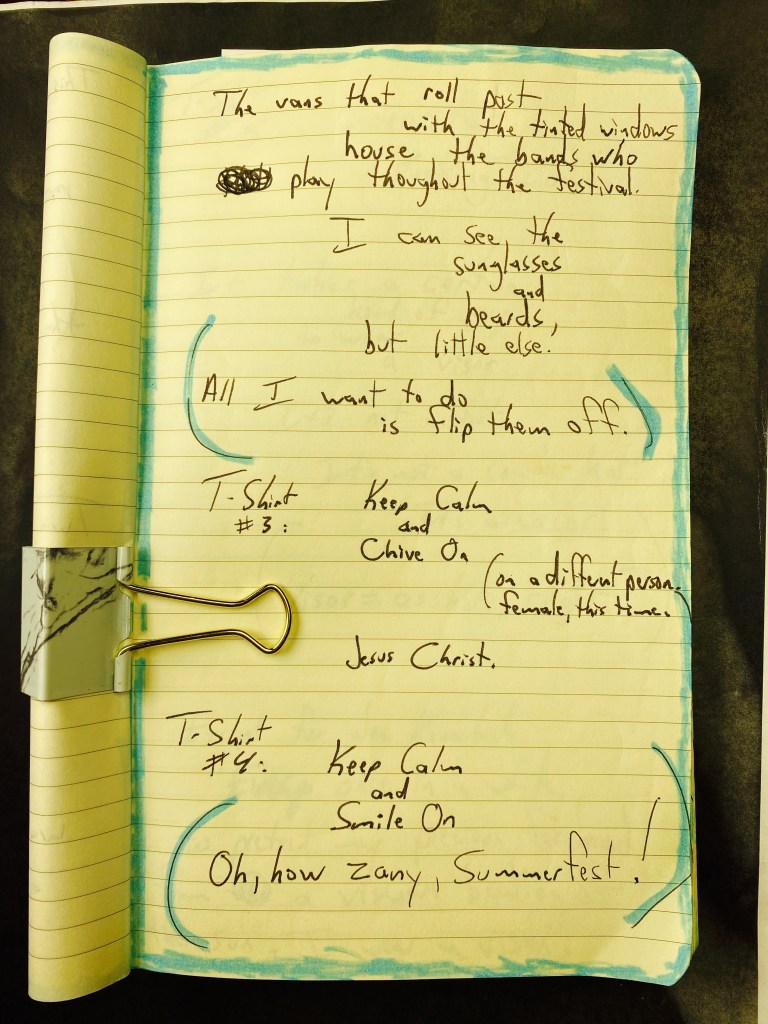 The vans that roll past
with the tinted windows
house the bands who
play thoughout the festival.
I can see the
sunglasses
and
beards,
but little else.
(All I want to do
is flip them off.)
T-Shirt
#3:
Keep Calm
and
Chive On
(on a different person.
female, this time.
Jesus Christ.
T-Shirt
#4:
Keep Calm
and
Smile On
(Oh, how zany, Summerfest!)